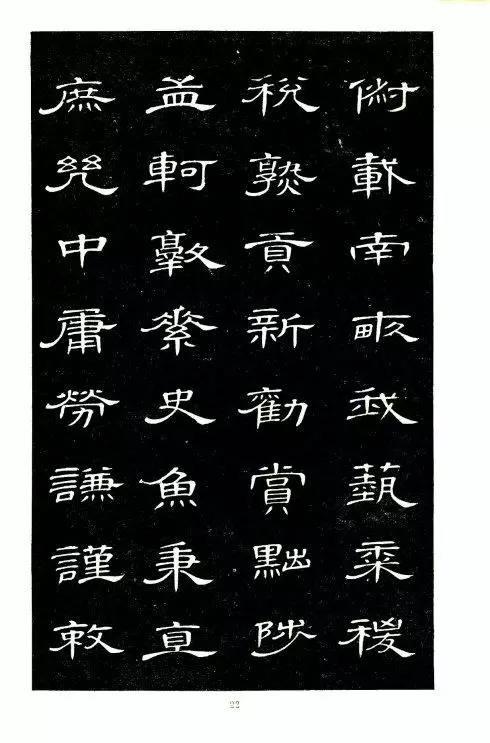 俶載南畝我藝黍稷
稅孰貢新勸賞黜陟
孟軻敦素史魚秉直
庶幾中庸勞謙謹敕
22